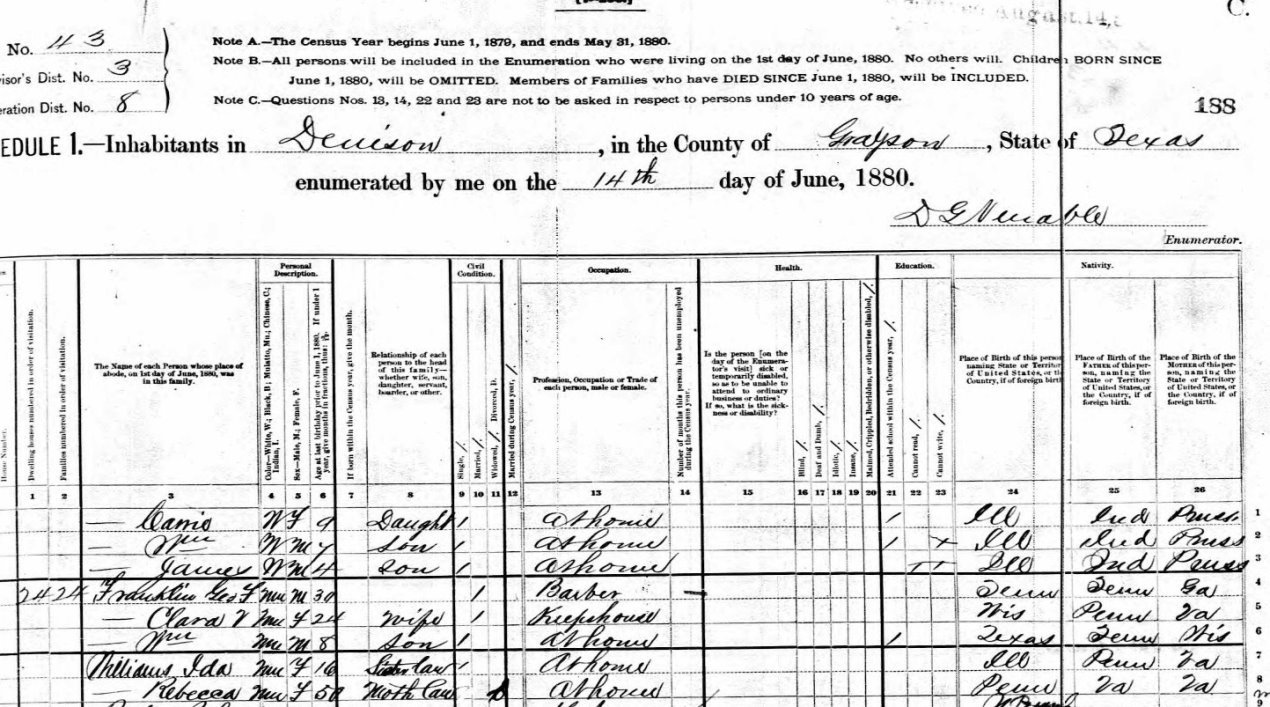 C.
August 14,
No. 43
Note A.—The Census Year begins June 1, 1879, and ends May 31, 1880.
visor's Dist. No. 3
Note B.—All persons will be included in the Enumeration who were living on the 1st day of June, 1880. No others will. Children BORN SINCE
June 1, 1880, will be OMITTED. Members of Families who have DIED SINCE June 1, 1880, will be INCLUDED.
eration Dist. No. 8
Note C.—Questions Nos. 13, 14, 22 and 23 are not to be asked in respect to persons under 10 years of age.
188
EDULE 1.—Inhabitants in Denison, in the County of Grayson, State of Texas
enumerated by me on the 14th day of June, 1880.
D G Venable
Enumerator.
Personal Description. Civil Condition. Occupation. Health. Education. Nativity.
House Number.
Dwelling houses numbered in order of visitation.
Families numbered in order of visitation.
The Name of each Person whose place of abode, on 1st day of June, 1880, was in this family.
Color—White, W.; Black, B.; Mulatto, Mu.; Chinese, C.; Indian, I.
Sex—Male, M.; Female, F.
Age at last birthday prior to June 1, 1880. If under 1 year, give months in fractions, thus:
If born within the Census year, give the month.
Relationship of each person to the head of this family—whether wife, son, daughter, servant, boarder, or other.
Single, /.
Married, /.
Widowed, /. Divorced, D.
Married during Census year, /.
Profession, Occupation or Trade of each person, male or female.
Number of months this person has been unemployed during the Census year.
Is the person [on the day of the Enumerator's visit] sick or temporarily disabled, so as to be unable to attend to ordinary business or duties? If so, what is the sickness or disability?
Blind, /.
Deaf and Dumb, /.
Idiotic, /.
Insane, /.
Maimed, Crippled, Bedridden, or otherwise disabled, /.
Attended school within the Census year, /.
Cannot read, /.
Cannot write, /.
Place of Birth of this person naming State or Territory of United States, or the Country, if of foreign birth
Place of Birth of the FATHER of this person, naming the State or Territory of United States, or the Country, if of foreign birth.
Place of Birth of the MOTHER of this person, naming the State or Territory of United States, or the Country, if of foreign birth.
1 2 3 4 5 6 7 8 9 10 11 12 13 14 15 16 17 18 19 20 21 22 23 24 25 26
— W F 9 Daught / At home / Ill Ind Pruss. 1
— Wm W M 7 Son / At home / + Ill Ind Pruss 2
— James W M 4 Son / At home Ill Ind Pruss 3
24 24 Franklin Geo F Mu M 30 / Barber — Tenn Tenn Ga 4
— Clara V Mu F 24 wife / Keeps house Wis Penn Va 5
— Wm Mu M 8 Son / At home / Texas Tenn Wis 6
Williams Ida Mu F 16 Sister law / At home Ill Penn Va 7
— Rebecca Mu F 50 Moth Law At home Penn Va Va 8
9